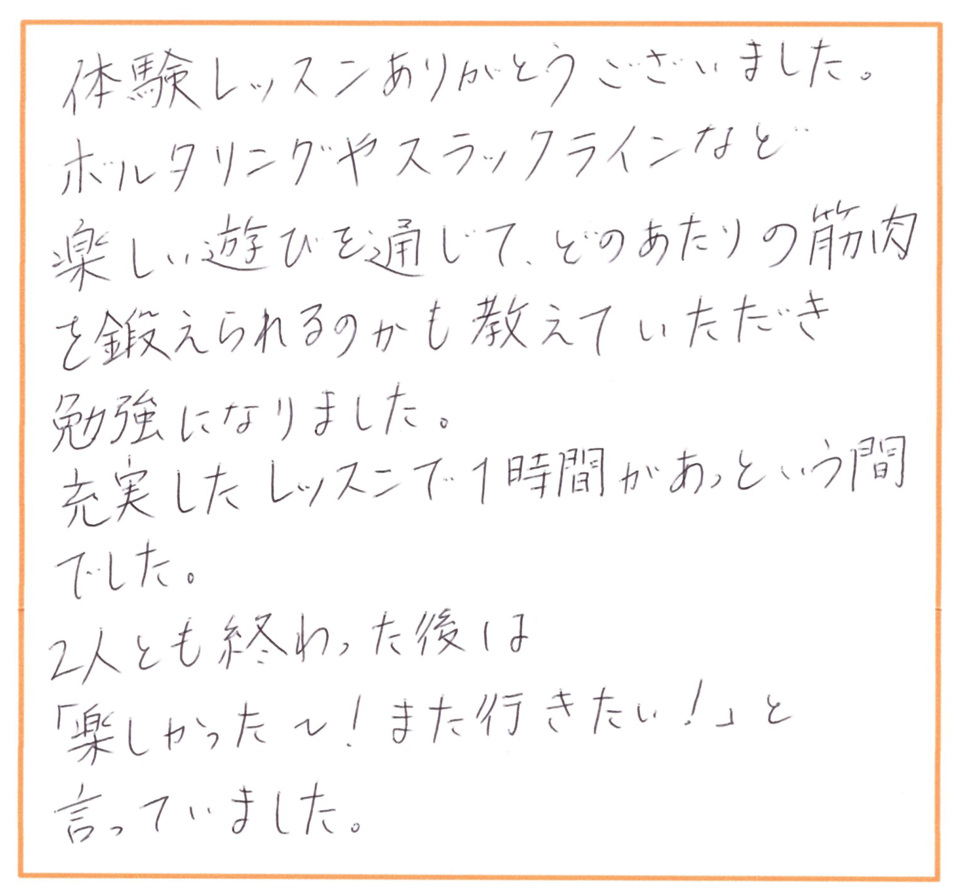 体験レッスンありがとうございました。
ボルタリングやスラックラインなど
楽しい遊びを通じて、どのあたりの筋肉
を鍛えられるのかも教えていただき
勉強になりました。
充実したレッスンで1時間があっという間
でした。
2人とも終わった後は
「楽しかった〜！また行きたい！」と
言っていました。